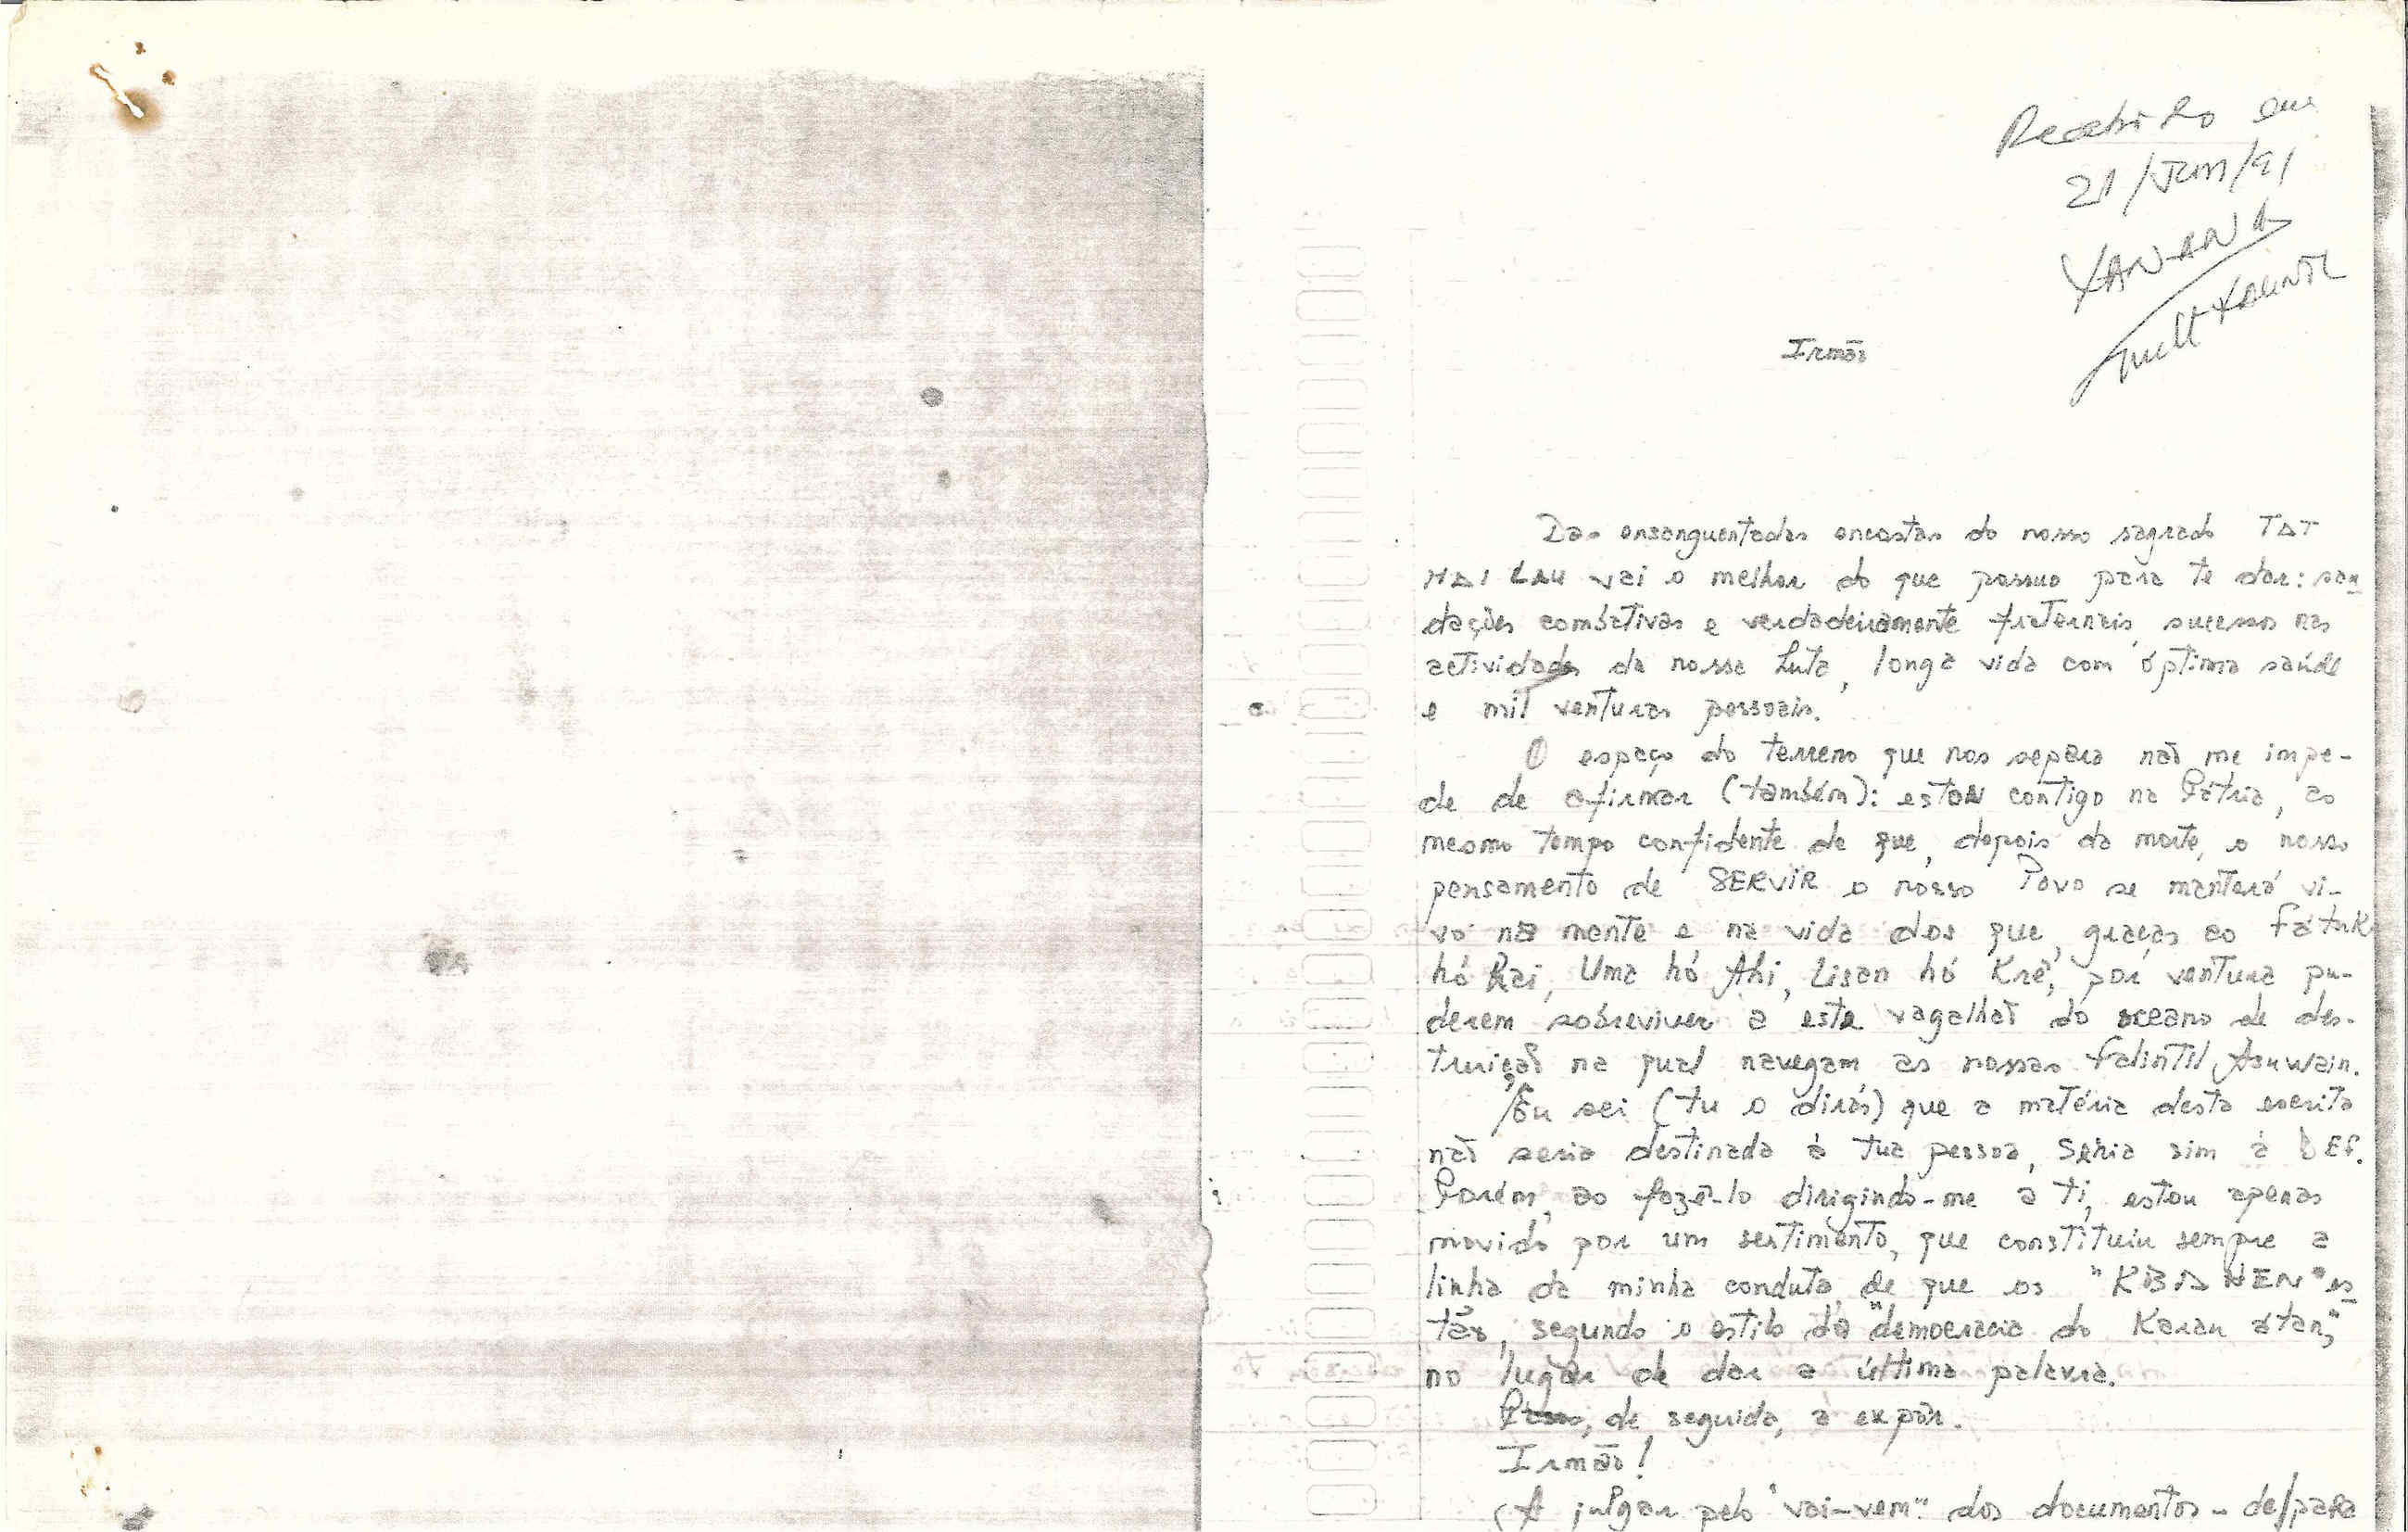 Recebido em
21/Jun/91
XANANA
Irmão
Das ensanguentadas encostas do nosso sagrado TAT
MAI LAU vai o melhor do que possuo para te dar: sau-
dações combativas e verdadeiramente fraternais, sucessos nas
actividades da nossa Luta, longa vida com óptima saúde
e mil venturas pessoais.
O espaço do terreno que nos separa não me impe-
de de afirmar (também): estou contigo na Pátria, ao
mesmo tempo confidente de que, depois da morte, o nosso
pensamento de SERVIR o nosso Povo se manterá vi-
vo na mente e na vida dos que, graças ao Fatuk
hó Rai, Uma hó Ahi, Lisan hó Kré, por ventura pu-
derem sobreviver a este vagalhão do oceano de des-
truição na qual navegam as nossas Falintil Asuwain.
Eu sei (tu o dirás) que a matéria desta escrita
não seria destinada à tua pessoa, seria sim à DEF.
Porém, ao fazê-lo dirigindo-me a ti, estou apenas
movido por um sentimento, que constituiu sempre a
linha da minha conduta, de que os "KBA NEN" es-
tão, segundo o estilo da "democracia do Karau átan",
no lugar de dar a última palavra.
Passo, de seguida, a expôr.
Irmão!
(A julgar pelo "vai-vem" dos documentos - de/para